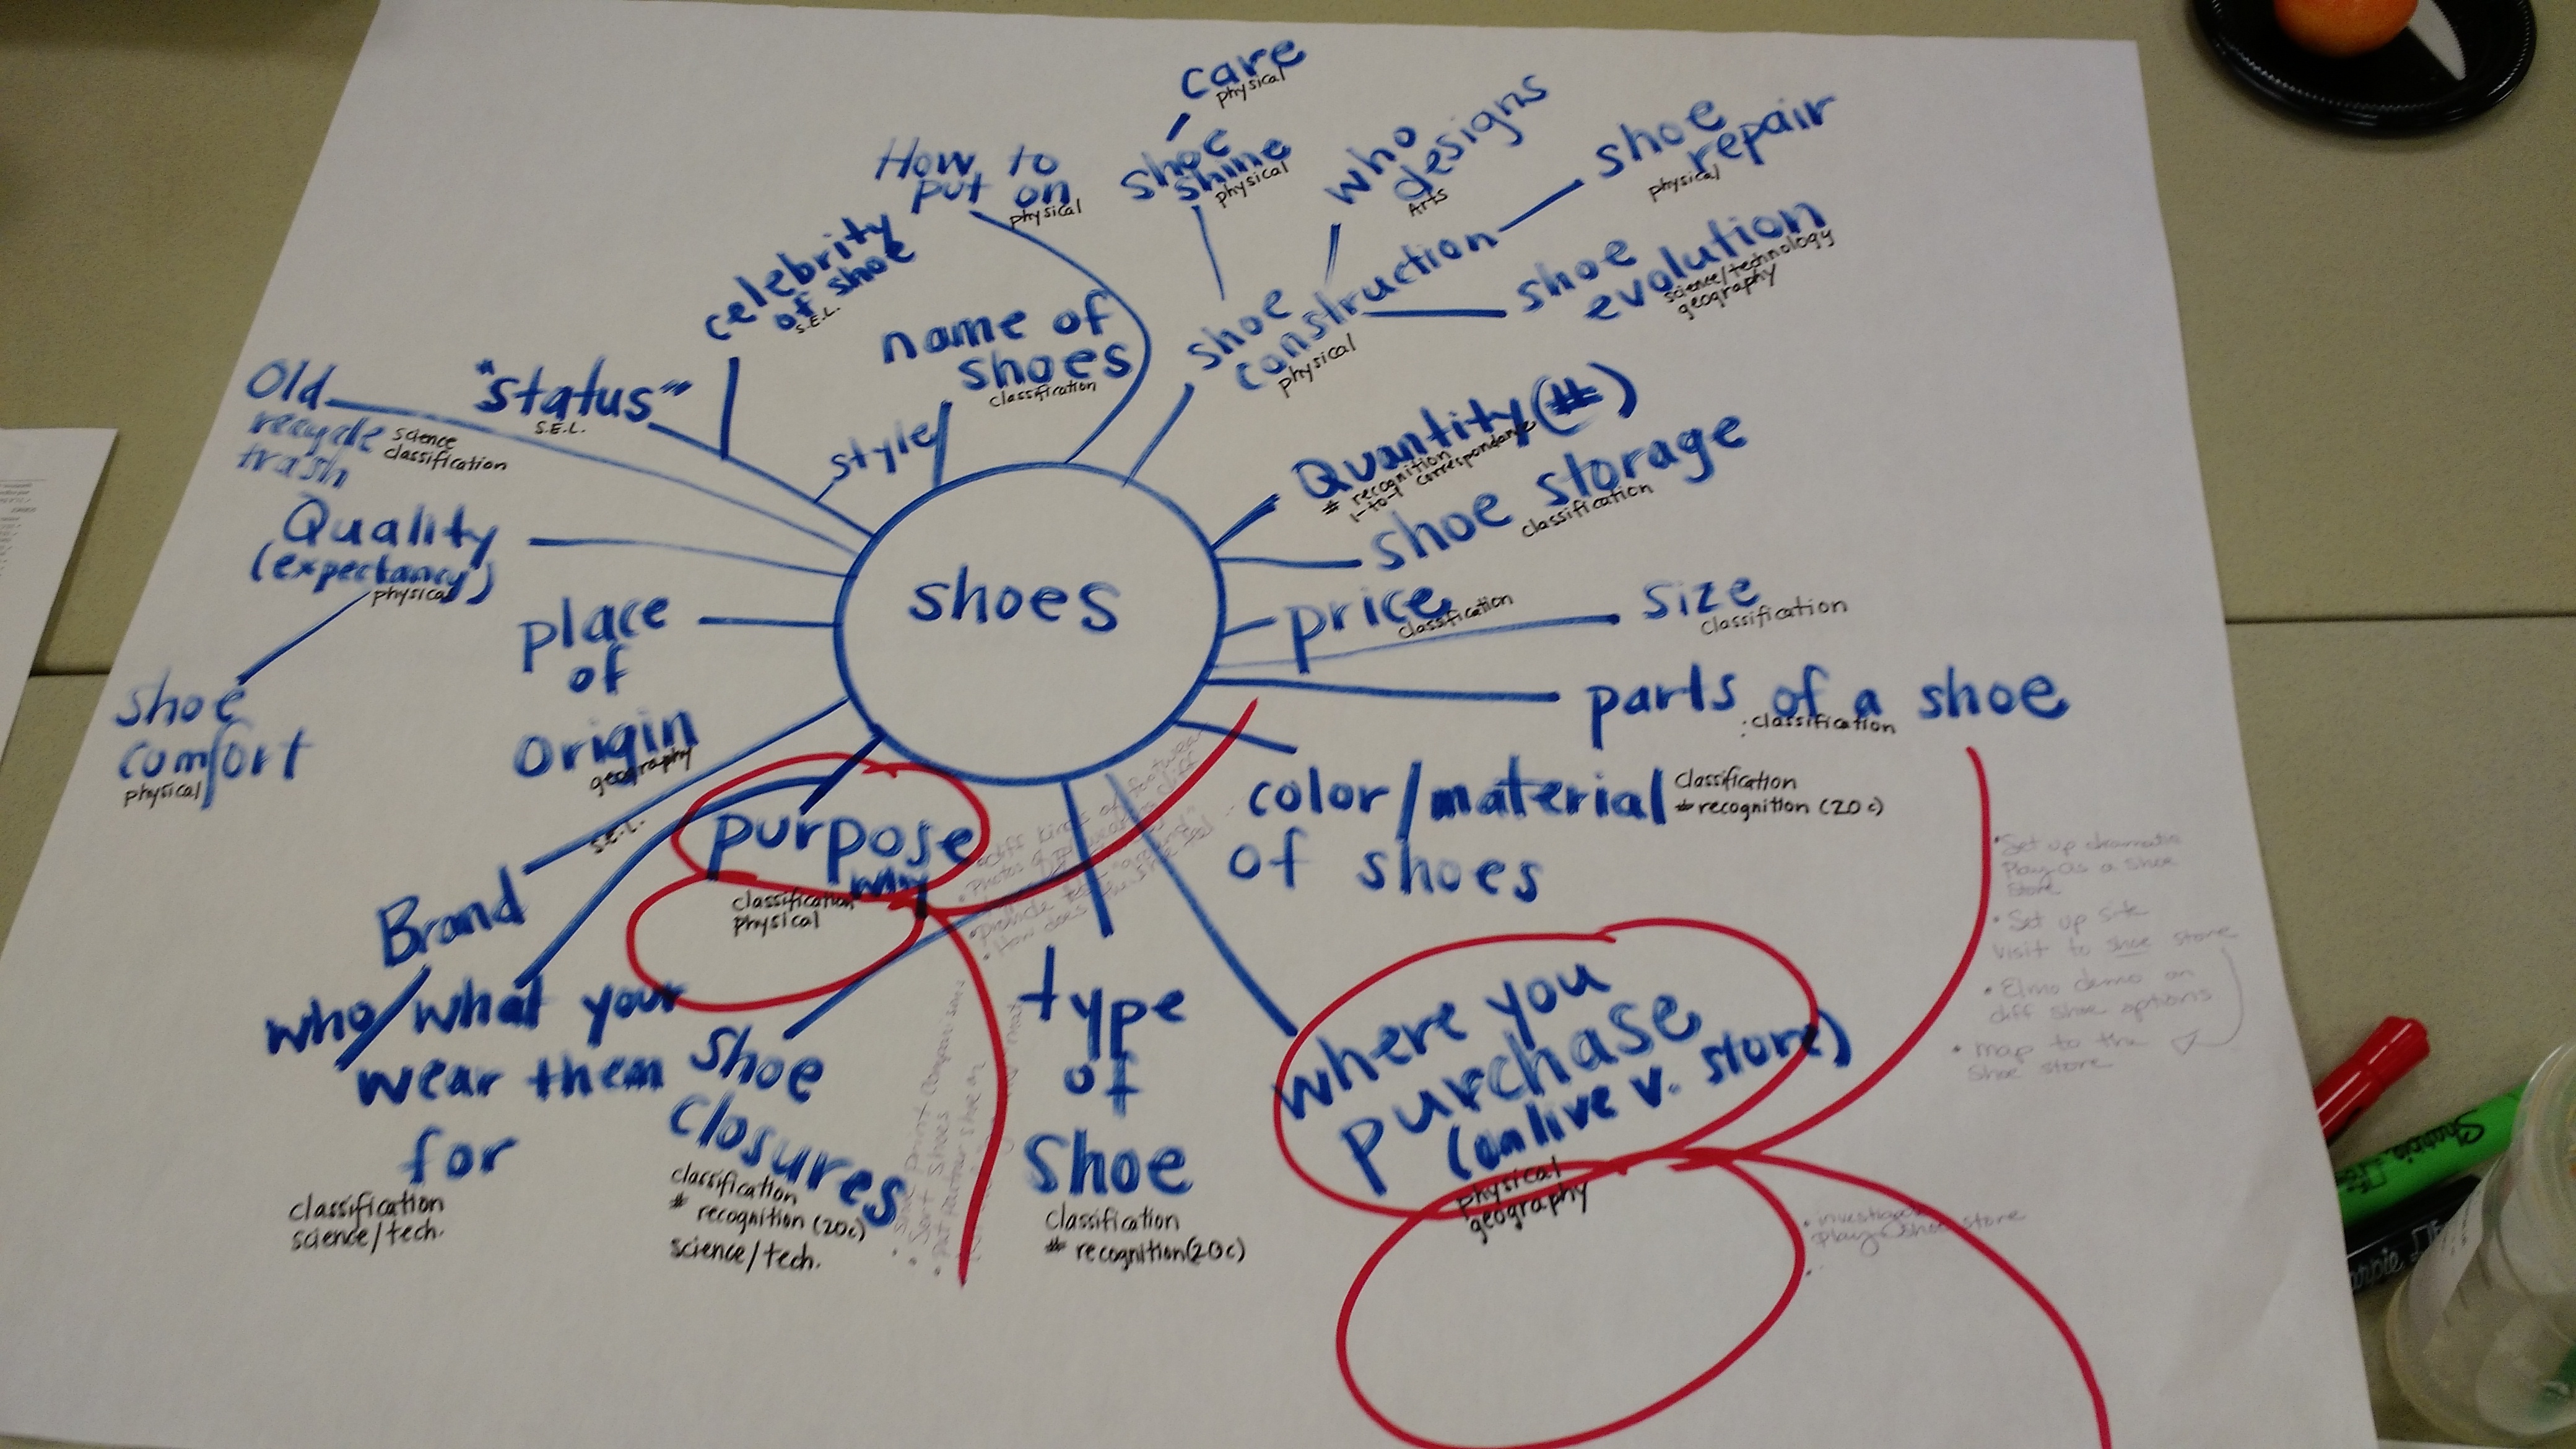 care
physical
shoe
shine
physical
How to
put on
physical
who
designs
Arts
shoe
repair
physical
celebrity
of shoe
S.E.L.
name of
shoes
classification
style
shoe
construction
physical
shoe
evolution
science/technology
geography
Old
recycle
trash
science
classification
"status"
S.E.L.
Quantity (#)
# recognition
1-to-1 correspondance
shoe storage
classification
Quality
(expectancy)
physical
shoes
price
classification
size
classification
place
of
origin
geography
parts of a shoe
classification
shoe
comfort
physical
color/material
of shoes
classification
# recognition (20c)
S.E.L.
Brand
purpose
why
classification
physical
who/what your
wear them
for
classification
science/tech.
shoe
closures
classification
# recognition (20c)
science/tech.
type
of
shoe
classification
# recognition (20c)
where you
purchase
(onlive v. store)
physical
geography
• Diff kinds of footwear
• Photos of
• How does the shoe feel
• Sort shoes
• Set up dramatic
Play as a shoe
store
• Set up site
visit to shoe store
• Elmo demo on
diff shoe options
• map to the
shoe store
• investigate
play shoe store
Sharpie